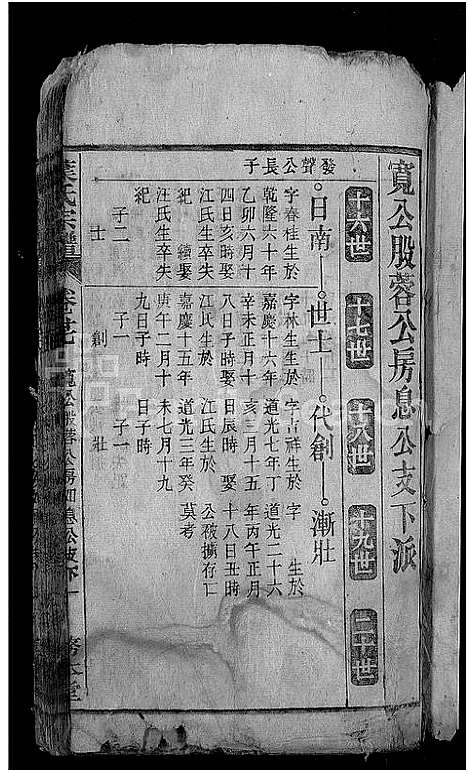 寬公股蓉公房息公支下派
十六世
十七世
十八世
十九世
二十世
發聲公長子
日南
字春桂生於
乾隆六十年
乙卯六月十
四日亥時娶
江氏生卒失
紀 續娶
汪氏生卒失
紀
子二
士
世士
字林生生於
嘉慶十六年
辛未正月十
八日子時娶
江氏生於
嘉慶十五年
庚午二月十
九日子時
子一
創
代創
字古祥生於
道光七年丁
亥三月十五
日辰時 娶
江氏生於
道光三年癸
未七月十九
日子時
子一
壯
漸壯
字 生於
道光二十六
年丙午正月
十八日丑時
公被擄存亡
莫考
葉氏宗譜